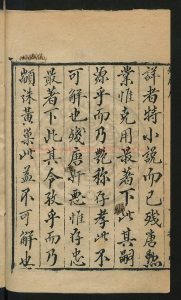 詳者特小說而已殘唐興
業惟克用最著下此其嗣
源乎而乃艷称存孝此不
可解也殘唐奸惡惟存忠
最著下此其令孜乎而乃
顓誅黃巢此益不可解也